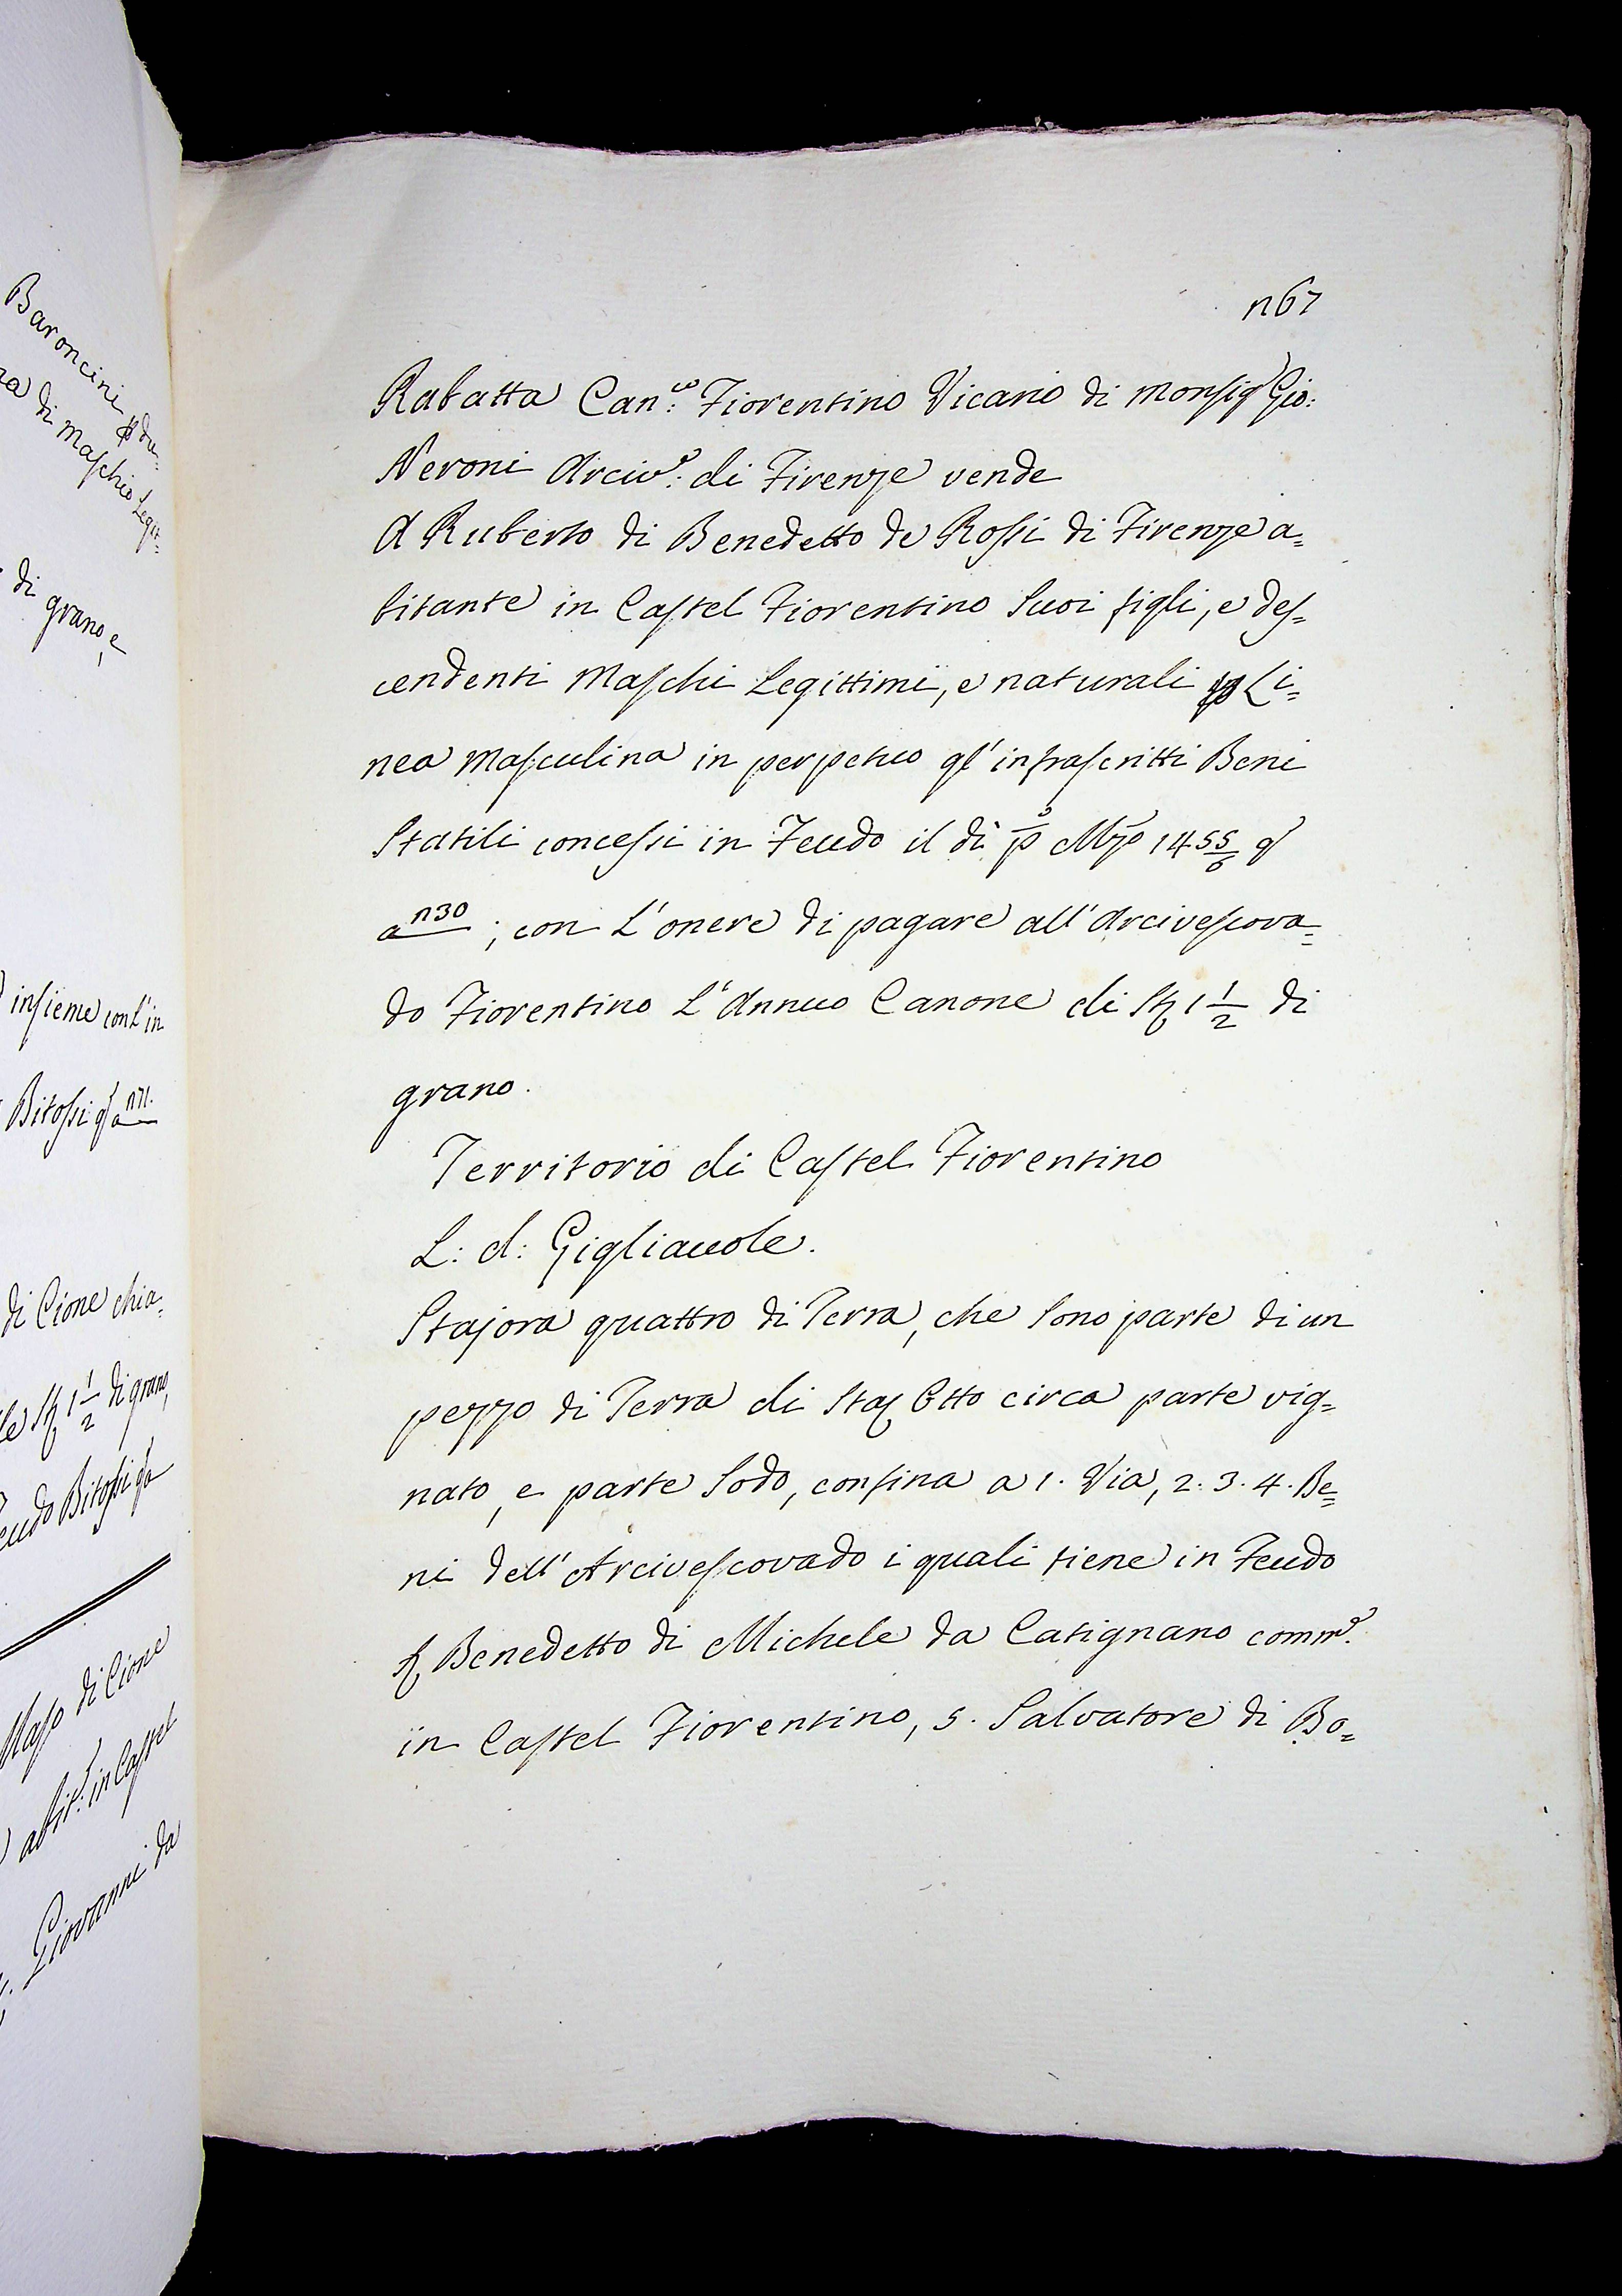 Baroncini
ra di Maschio Legit=
di grano, e
insieme con l'in
Bitossi q a n71.
di Cione chia=
le St 1 1/2 di grano,
eudo Bitossi q a
Maso di Cione
abit: in Castel
Giovanni da
n67
Rabatta Can:co Fiorentino Vicario di Monsig Gio:
Neroni Arciv:o di Firenze vende
A Ruberto di Benedetto de Rossi di Firenze a=
bitante in Castel Fiorentino Suoi figli, e des=
cendenti Maschi Legittimi, e naturali p Li=
nea Masculina in perpetuo gl' infrascritti Beni
Statili concessi in Feudo il dì p.o Mzo 1455/6 q
a n30; con L'onere di pagare all'Arcivescova=
do Fiorentino L'Annuo Canone di St 1 1/2 di
grano.
Territorio di Castel Fiorentino
L: d: Gigliauole.
Stajora quattro di Terra, che Sono parte di un
pezzo di Terra di Staj Otto circa parte vig=
nato, e parte Sodo, confina a 1. Via, 2. 3. 4. Be=
ni dell'Arcivescovado i quali tiene in Feudo
S Benedetto di Michele da Catignano comm.e
in Castel Fiorentino, 5. Salvatore di Bo=